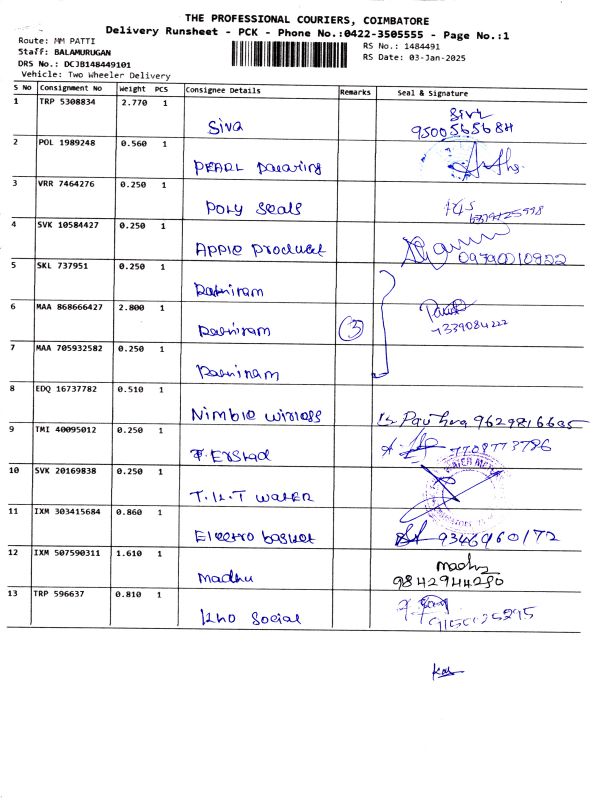 THE PROFESSIONAL COURIERS, COIMBATORE
Delivery Runsheet - PCK - Phone No.:0422-3505555 - Page No.:1
Route: MM PATTI
RS No.: 1484491
Staff: BALAMURUGAN
RS Date: 03-Jan-2025
DRS No.: DCJB148449101
Vehicle: Two Wheeler Delivery
S No Consignment No Weight PCS Consignee Details Remarks Seal & Signature
1 TRP 5308834 2.770 1
Siva Siva
9500565684
2 POL 1989248 0.560 1
PEARL
3 VRR 7464276 0.250 1
Poly Seals
4 SVK 10584427 0.250 1
Apple Product 09790010922
5 SKL 737951 0.250 1
Rathiram
6 MAA 868666427 2.800 1
Rathiram 3
7339084222
7 MAA 705932582 0.250 1
Rathiram
8 EDQ 16737782 0.510 1
Nimble wirless 9629816635
9 TMI 40095012 0.250 1
7708773786
10 SVK 20169838 0.250 1
T.K.T WATER
11 IXM 303415684 0.860 1
Electro basket 9346960172
12 IXM 507590311 1.610 1
Madhu madhu
9842944290
13 TRP 596637 0.810 1
Kho Social